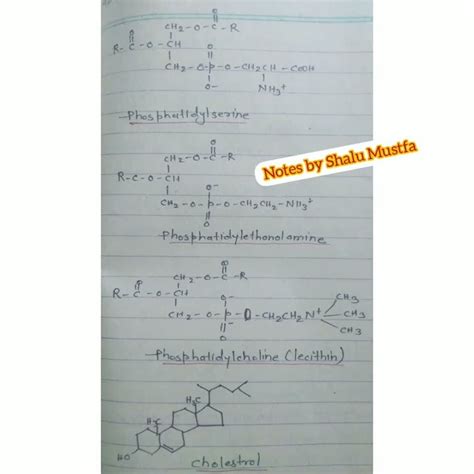 O
CH₂-O-C-R
O
R-C-O-CH
O
CH₂-O-P-O-CH₂CH-COOH
O⁻ NH₃⁺
Phosphatidylserine
O
CH₂-O-C-R
R-C-O-CH
O⁻
CH₂-O-P-O-CH₂CH₂-NH₃⁺
O
Phosphatidylethonolamine
Notes by Shalu Mustfa
O
CH₂-O-C-R
O
R-C-O-CH
O⁻
CH₂-O-P-O-CH₂CH₂N⁺
O⁻
CH₃
CH₃
CH₃
Phosphatidylcholine (lecithin)
H₃C
H₃C
HO
Cholestrol